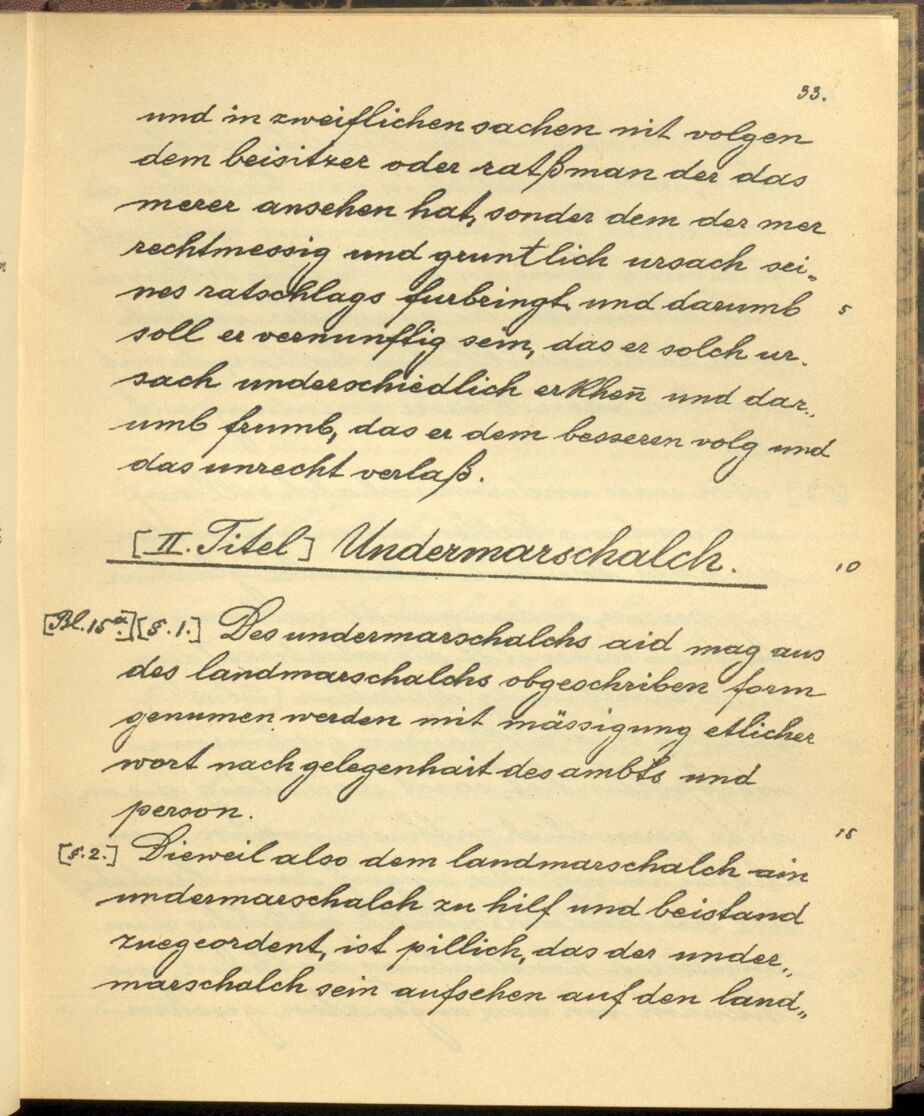 33.
und in zweiflichen sachen nit volgen
dem beisitzer oder ratßman der das
merer ansehen hat, sonder dem der mer
rechtmessig und gruntlich ursach sei„
nes ratschlags furbringt und darumb 5
soll er vernunftig sein, das er solch ur.
sach underschiedlich erkhen̄ und dar„
umb frumb, das er dem besseren volg und
das unrecht verlaß.
[II. Titel] Undermarschalch. 10
[Bl. 15a.] [§. 1.] Des undermarschalchs aid mag aus
des landmarschalchs obgeschriben form
genumen werden mit mässigung etlicher
wort nach gelegenhait des ambts und
person. 15
[§. 2.] Dieweil also dem landmarschalch ain
undermarschalch zu hilf und beistand
zuegeordent, ist pillich, das der under„
marschalch sein aufsehen auf den land„